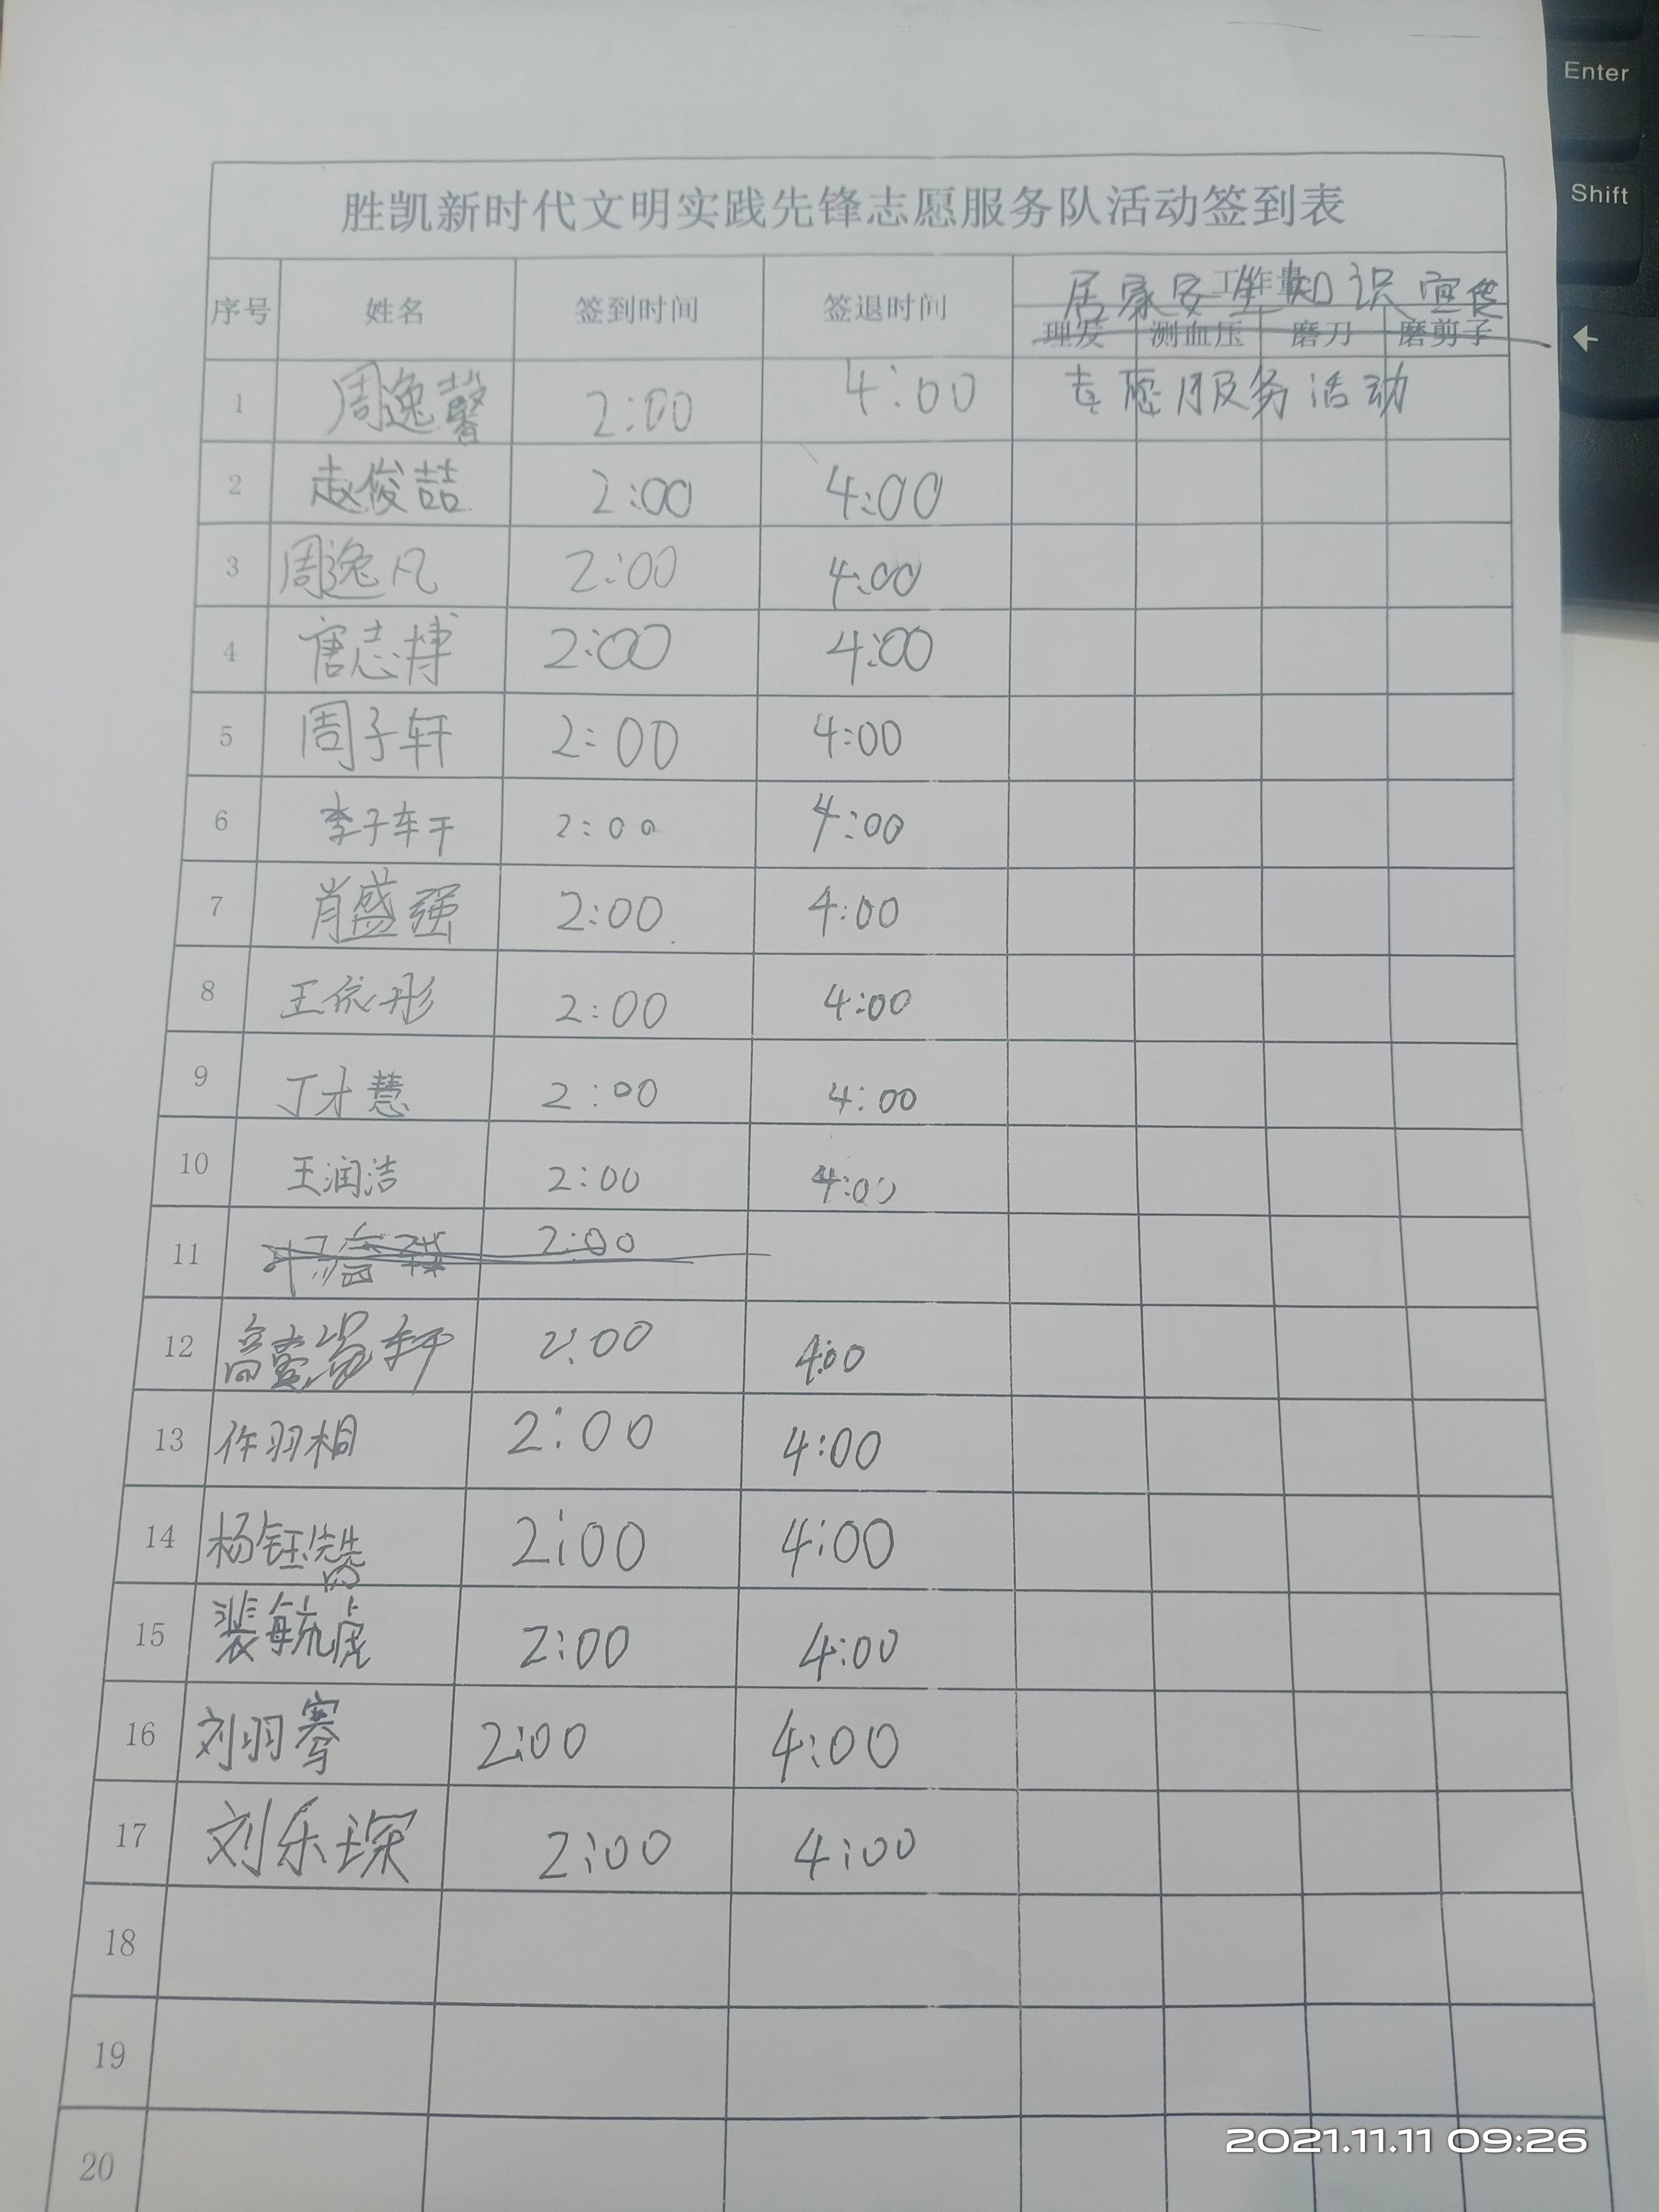 Enter
Shift
胜凯新时代文明实践先锋志愿服务队活动签到表
序号 姓名 签到时间 签退时间 工作量
居家安全知识宣传
理发 测血压 磨刀 磨剪子
志愿服务活动
1 周逸馨 2:00 4:00
2 赵俊喆 2:00 4:00
3 周逸凡 2:00 4:00
4 唐志博 2:00 4:00
5 周子轩 2:00 4:00
6 李子轩 2:00 4:00
7 肖盛强 2:00 4:00
8 王依彤 2:00 4:00
9 丁才慧 2:00 4:00
10 王润洁 2:00 4:00
11 2:00
12 2:00 4:00
13 羽桐 2:00 4:00
14 杨钰 2:00 4:00
15 裴毓虎 2:00 4:00
16 刘羽骞 2:00 4:00
17 刘乐琛 2:00 4:00
18
19
20
2021.11.11 09:26